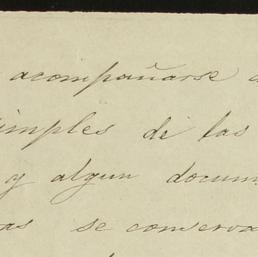 acompañarse
simples de las
y algun docum
as se conserva